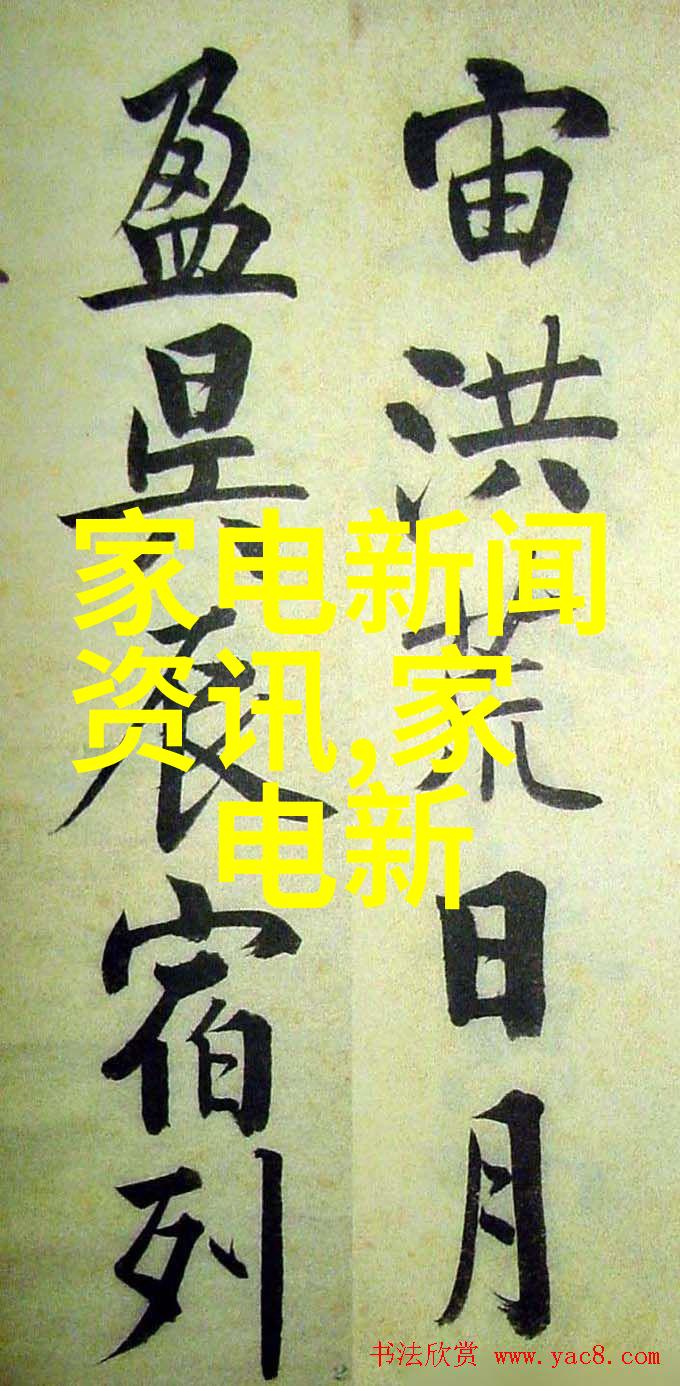 宙洪荒日月
盈昃辰宿列
家电新闻
资讯,家
电新
书法欣赏 www.yac8.com
2